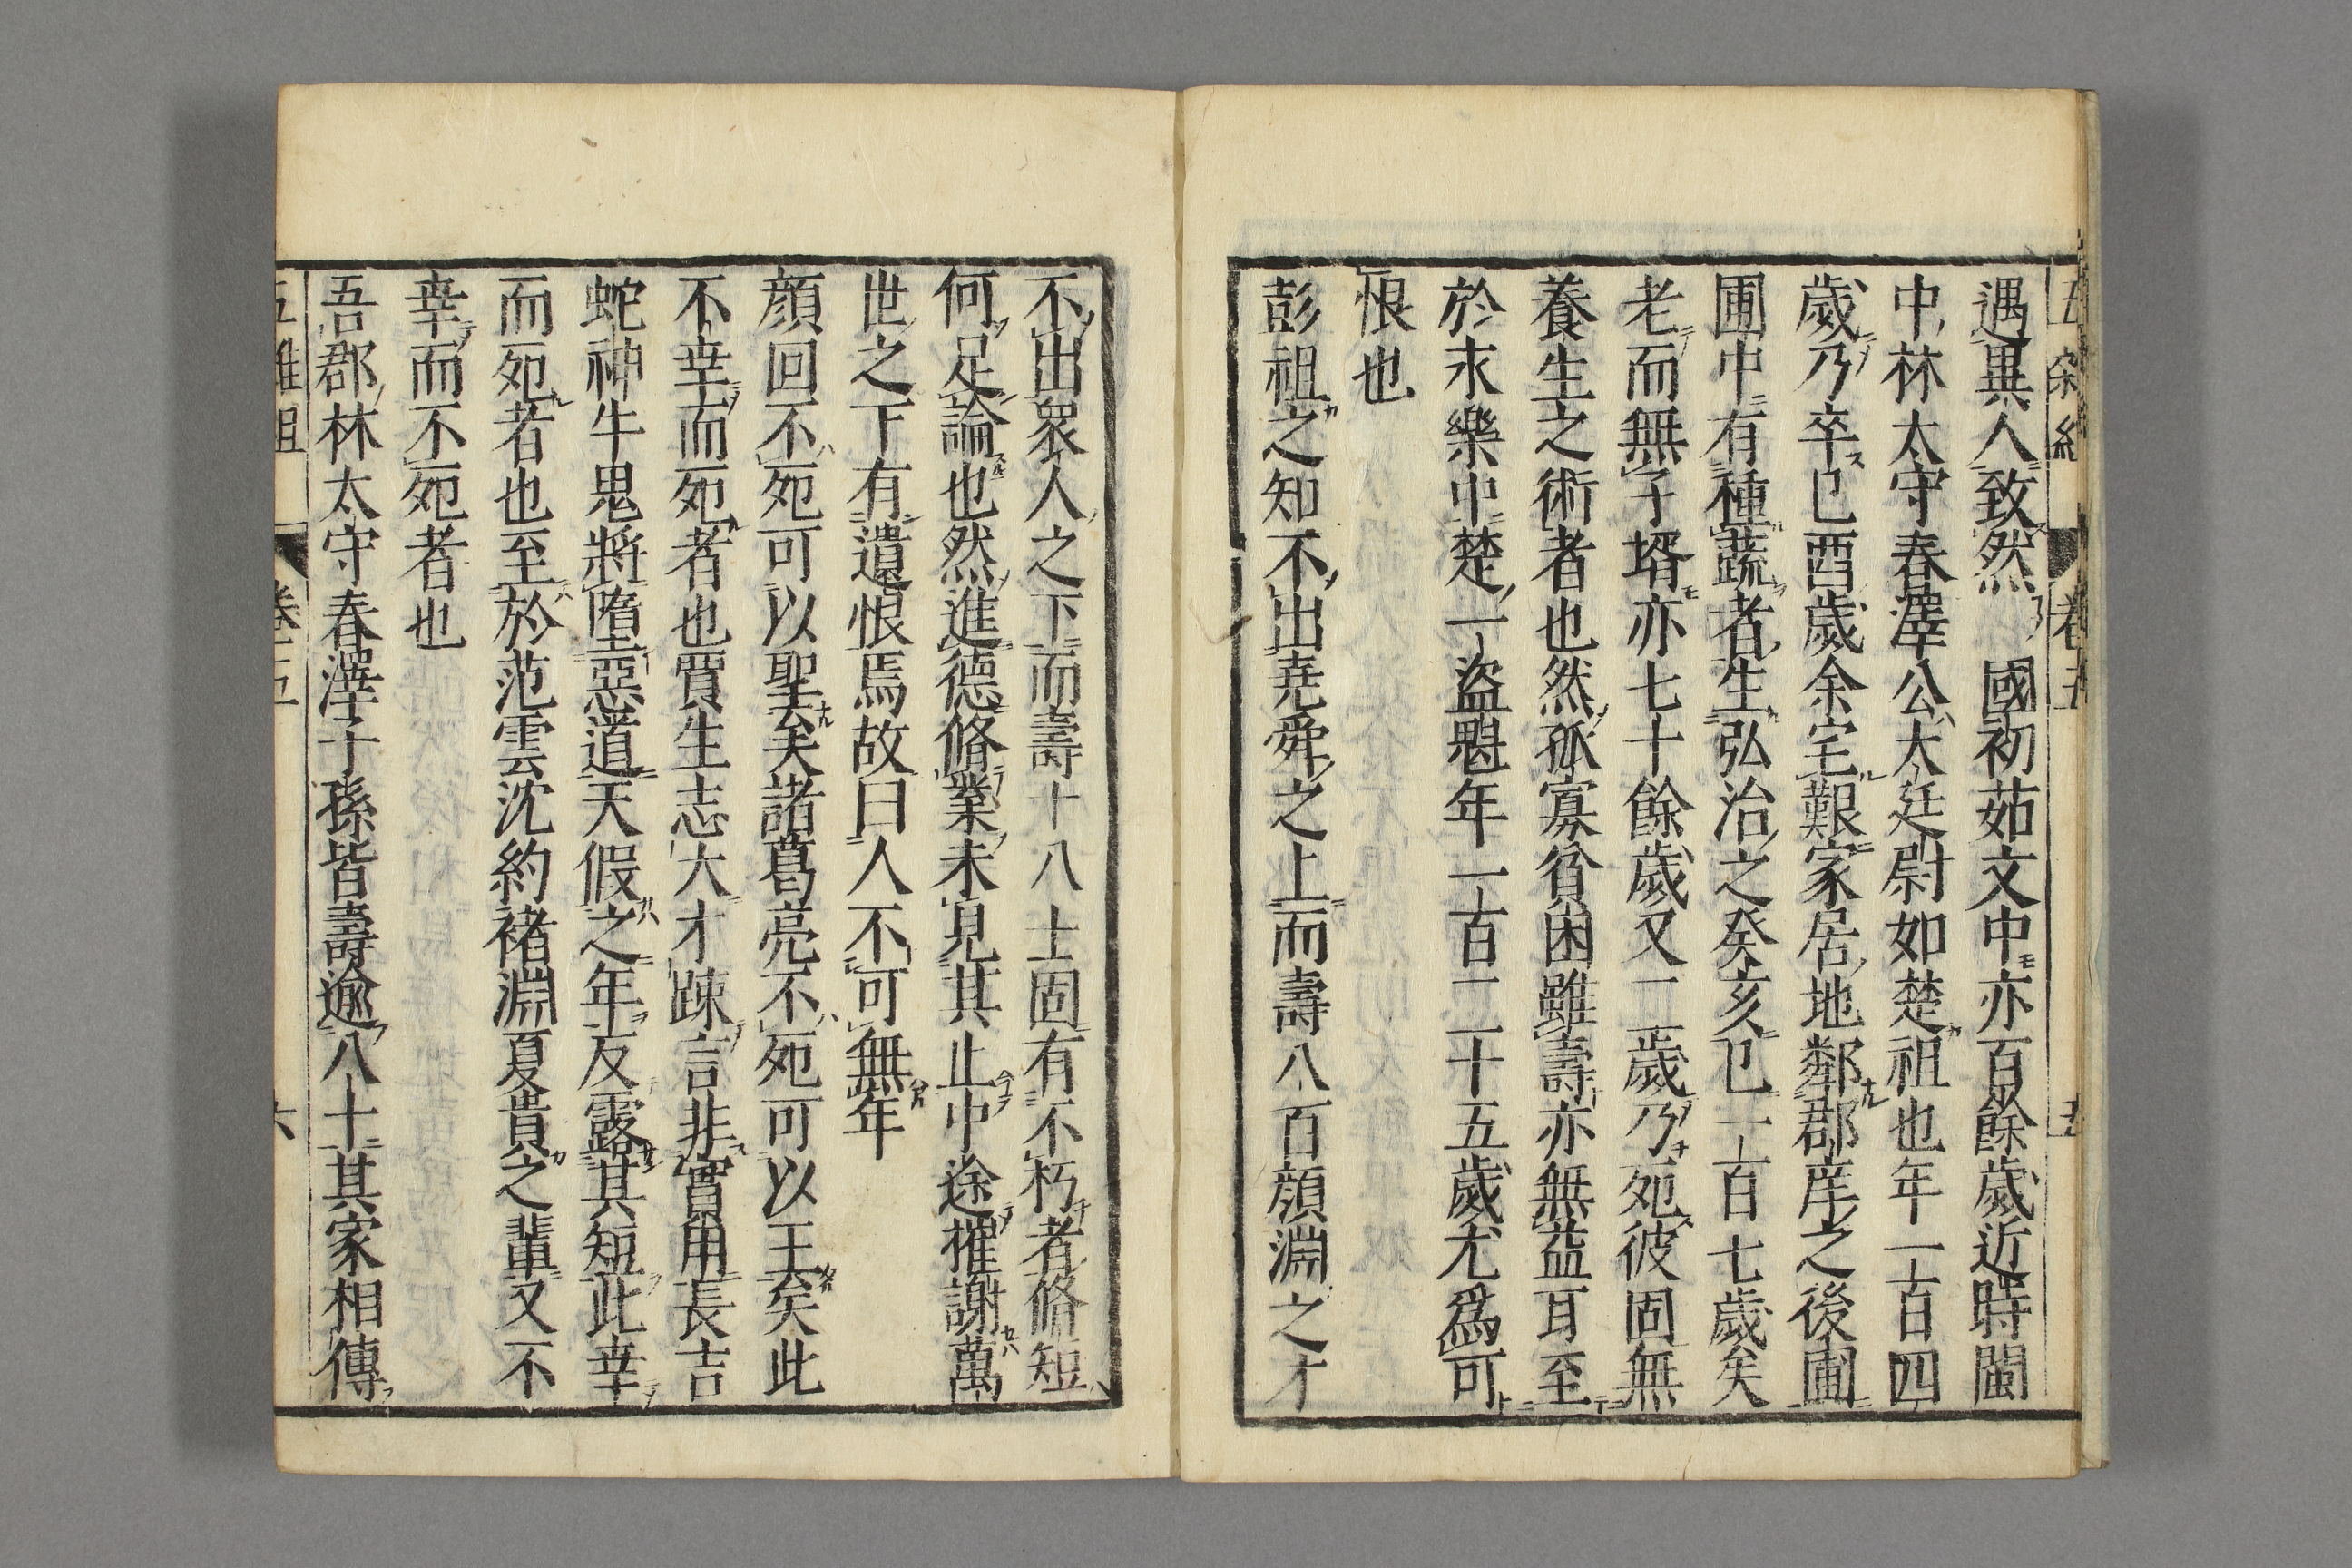 遇異人致然 國初茹文中亦百餘歲近時閩
中林太守春澤公太廷尉如楚祖也年一百四
歲乃卒已酉歲余宅艱家居地鄰郡庠之後圃
圃中有種蔬者生弘治之癸亥已一百七歲矣
老而無子壻亦七十餘歲又二歲乃死彼固無
養生之術者也然孤寡貧困雖壽亦無益耳至
於永樂中楚一盜魁年一百二十五歲尤爲可
恨也
彭祖之知不出堯舜之上而壽八百顔淵之才
不出衆人之下而壽十八士固有不朽者脩短
何足論也然進德脩業未見其止中途摧謝萬
世之下有遺恨焉故曰人不可無年
顔回不死可以聖矣諸葛亮不死可以王矣此
不幸而死者也賈生志大才疎言非實用長吉
蛇神牛鬼將墮惡道天假之年反露其短此幸
而死者也至於范雲沈約褚淵夏貴之輩又不
幸而不死者也
吾郡林太守春澤子孫皆壽逾八十其家相傳
五雜組 卷五 六